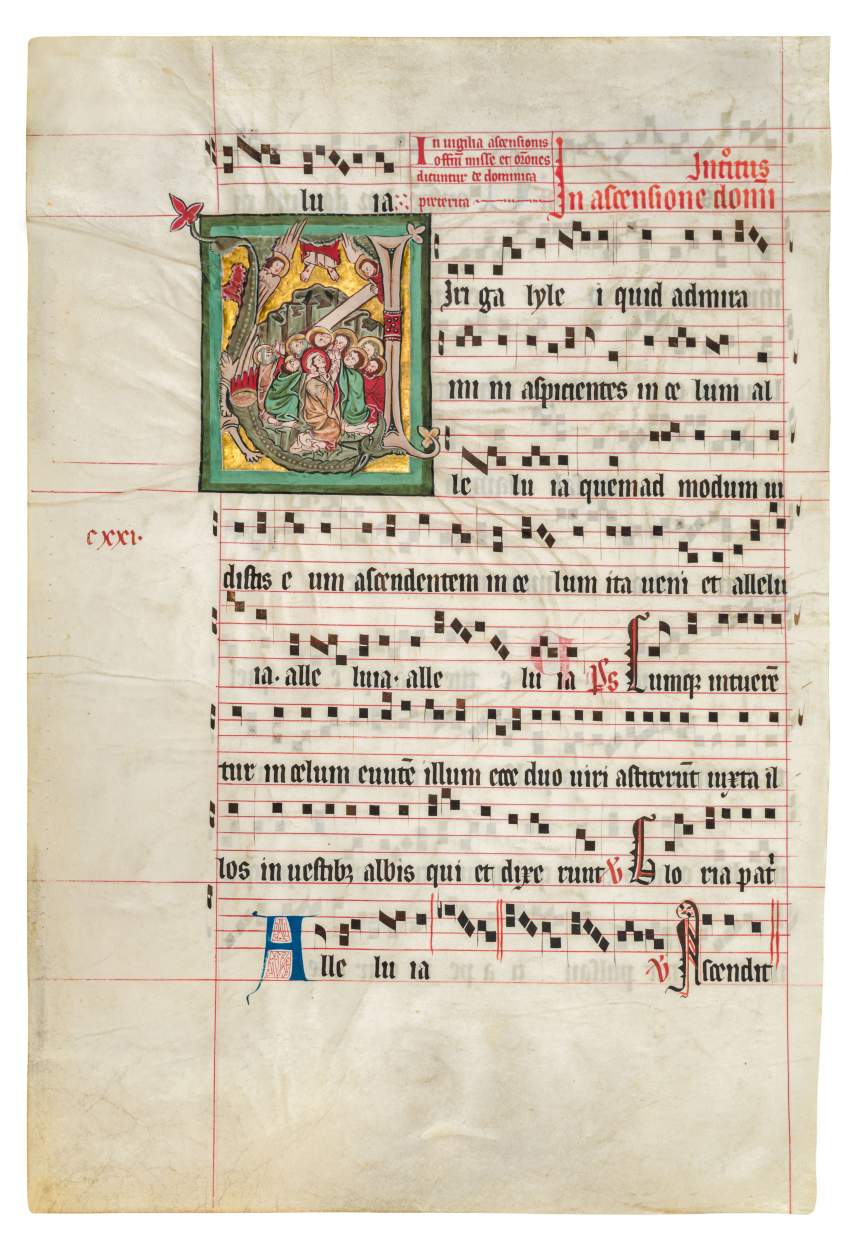 lu ia
In uigilia ascensionis
offm̄ misse et orōnes
dicuntur de dominica
preterita
Introitus
In ascensione domī
Viri ga lyle i quid admira
mi ni aspicientes in ce lum al
le lu ia quemad modum ui
cxxi.
distis e um ascendentem in ce lum ita ueni et allelu
ia. alle luia. alle lu ia Ps Cumqꝫ intuerē
tur in celum euntē illum ecce duo uiri astiterūt iuxta il
los in uestibꝫ albis qui et dixe runt V Glo ria pat
Alle lu ia V Ascendit